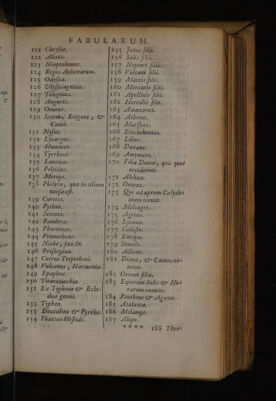 FABULARUM.
121 Chryses.
122 Aletes.
123 Neoptolemus.
124 Reges Achivorum.
125 Odyssea.
126 Ulyssis agnitio.
127 Telegonus.
128 Augures.
129 Oeneus.
130 Icarus, Erigone, &
131 Nysus.
132 Lycurgus.
134 Tyrrheni.
135 Laocoon.
136 Polyidus.
137 Merope.
138 Philyra, quæ in tiliam
versa est.
139 Curetes.
140 Python.
141 Sirenes.
142 Pandora.
143 Phoroneus.
144 Prometheus.
145 Niobe, sive Io.
146 Proserpina.
147 Cereris Triptolemus.
148 Vulcanus, Harmonia.
149 Epaphus.
150 Titanomachia.
151 Ex Typhone & Echi-
dna geniti.
152 Typhon.
153 Deucalion & Pyrrha.
154 Phaeton Hesiodi.
155 Jovis filii.
156 Solis filii.
157 Neptuni filii.
158 Vulcani filii.
159 Martis filii.
160 Mercurii filii.
161 Apollinis filii.
162 Herculis filii.
163 Amazones.
164 Athenæ.
165 Marsyas.
166 Ericthonius.
167 Liber.
168 Danaus.
169 Amymone.
170 Filiæ Danai, quæ quos
occiderint.
171 Althæa.
172 Oeneus.
173 Qui ad aprum Calydo-
nium ierunt.
174 Meleager.
175 Agrius.
176 Lycaon.
177 Callisto.
178 Europa.
179 Semele.
180 Actæon.
181 Diana, & Canum no-
mina.
182 Oceani filiæ.
183 Equorum Solis & Ho-
rarum nomina.
184 Pentheus & Agave.
185 Atalanta.
186 Melanippe.
187 Alope.
**** 188 Theo-